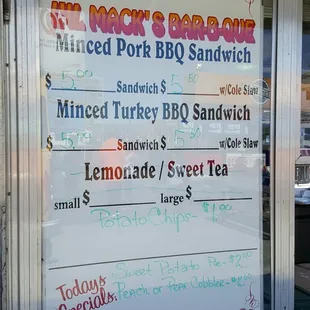 LIL MACK'S BAR-B-QUE
Minced Pork BBQ Sandwich
$ 5.00 Sandwich $ 5.50 w/Cole Slaw
Minced Turkey BBQ Sandwich
$ Sandwich $ 5.50 w/Cole Slaw
Lemonade / Sweet Tea
small $ large $
Potato Chips - $1.00
Todays Specials.
Sweet Potato Pie - $2.00
Peach or Pear Cobbler -